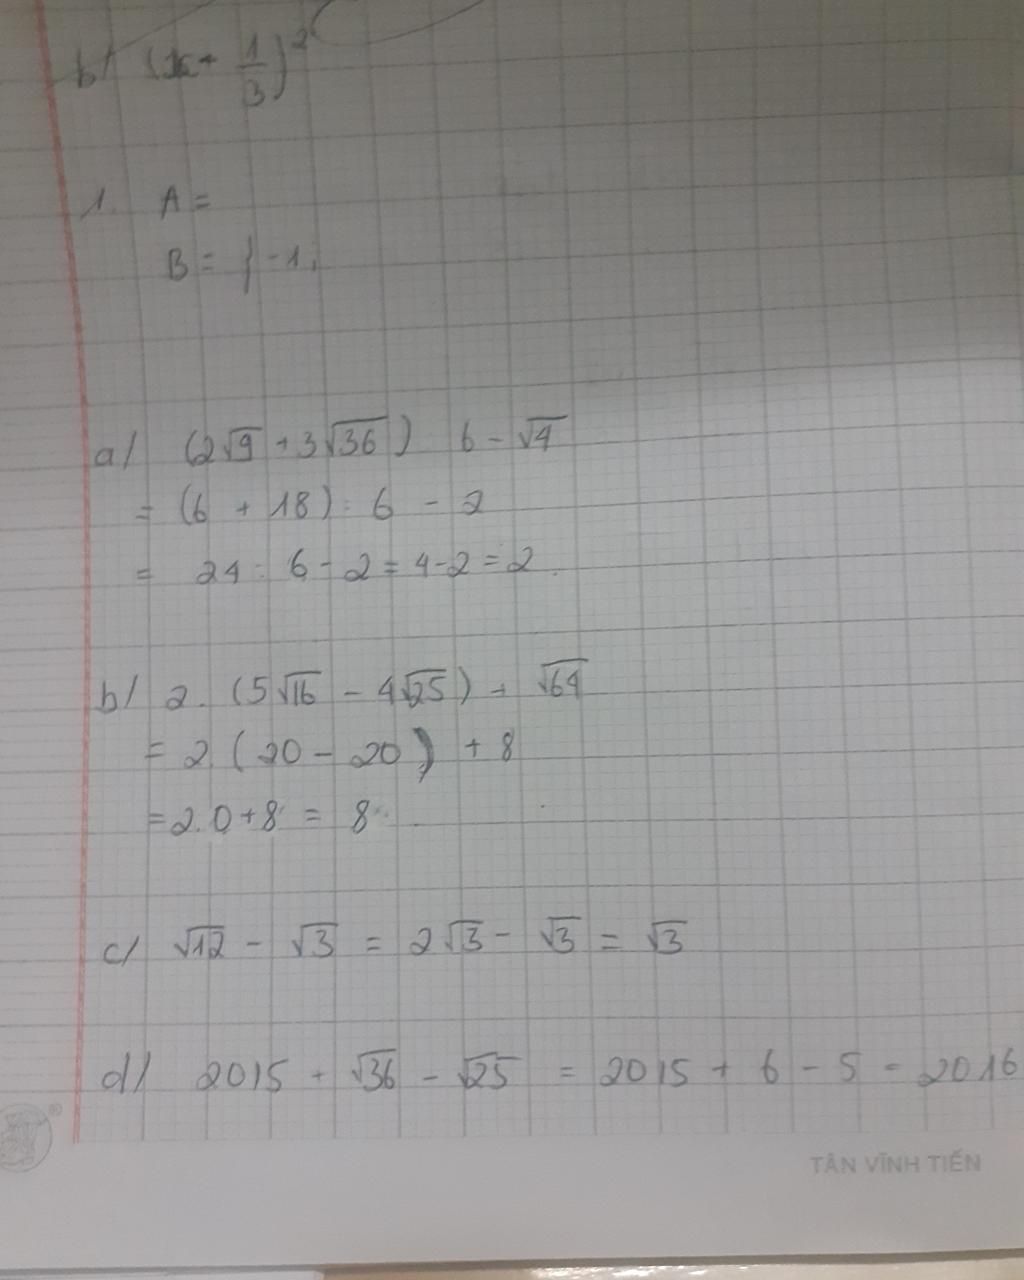 b/ (x + 1/3)²
1. A =
B = { -1;
a/ (2√9 + 3√36) : 6 - √4
= (6 + 18) : 6 - 2
= 24 : 6 - 2 = 4 - 2 = 2.
b/ 2. (5√16 - 4√25) + √64
= 2. (20 - 20) + 8
= 2. 0 + 8 = 8.
c/ √12 - √3 = 2√3 - √3 = √3
d/ 2015 + √36 - √25 = 2015 + 6 - 5 = 2016
TÂN VĨNH TIẾN